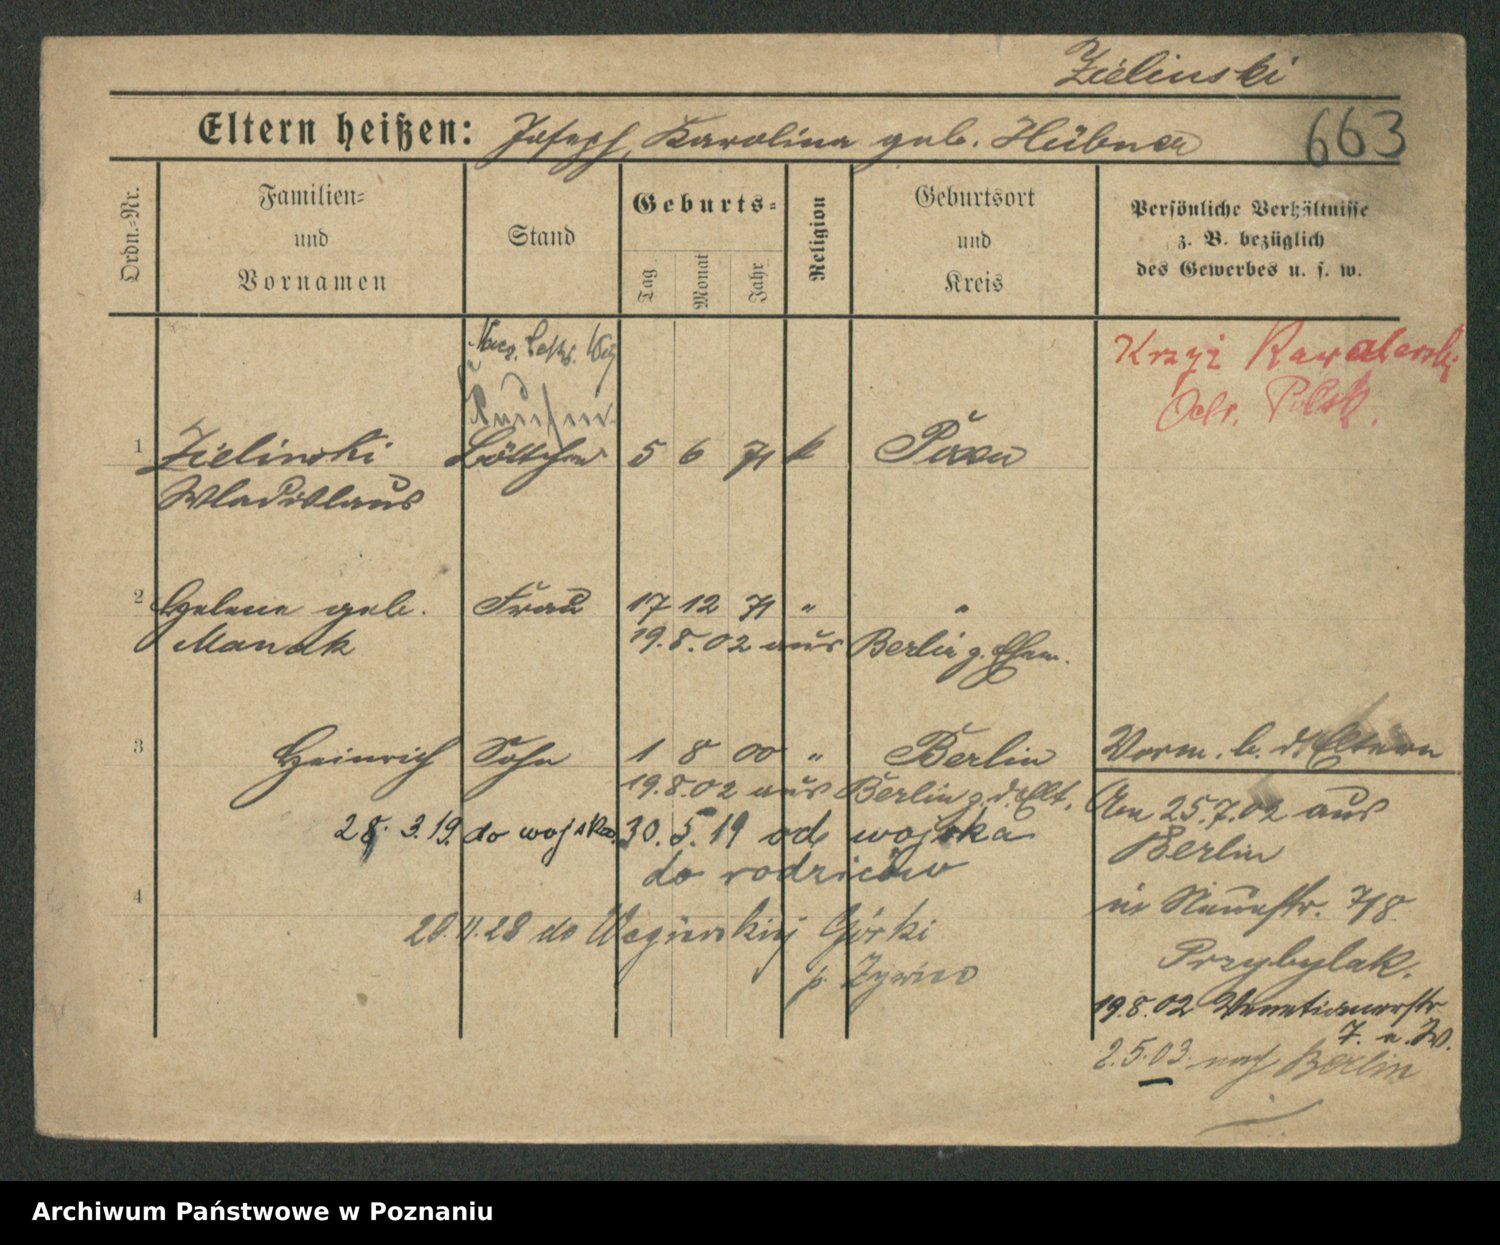 Zielinski
Eltern heißen: Joseph, Karolina geb. Hübner
663
Ordn.-Nr.
Familien-
und
Vornamen
Stand
Geburts-
Tag
Monat
Jahr
Religion
Geburtsort
und
Kreis
Persönliche Verhältnisse
z. B. bezüglich
des Gewerbes u. s. w.
Krzyż Kawalerski
Odr. Polsk.
1 Zielinski Böttcher 5 6 71 k Posen
Wladislaus
2 Helene geb. Frau 17 12 71 " "
19.8.02 aus Berlin z. Ehem.
3 Heinrich Sohn 1 8 00 " Berlin
19.8.02 aus Berlin z. d. Elt.
28. 3. 19. do wojska 30. 5. 19 od wojska
do rodziców
4
20.11.28 do Węgierskiej Górki
p. Żywiec
Vorm. b. d. Eltern
Am 25.7.02 aus
Berlin
in Neuestr. 7/8
Przybylak.
19.8.02 Venetianerstr
7. a. W.
2.5.03. nach Berlin
Archiwum Państwowe w Poznaniu